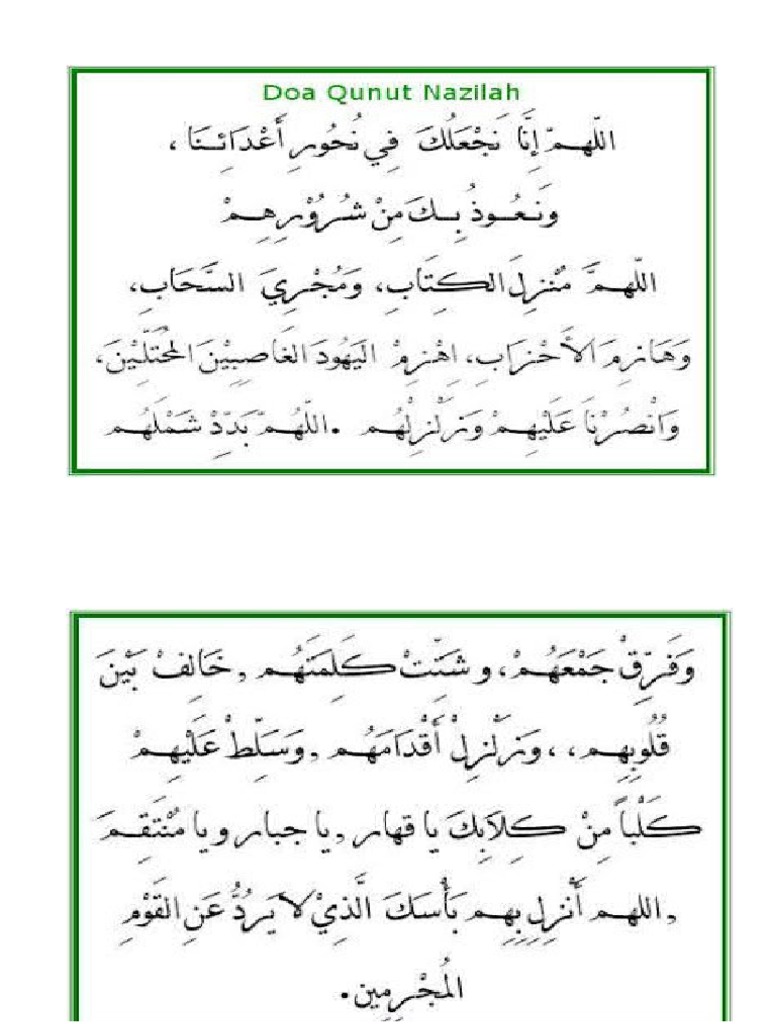 Doa Qunut Nazilah
اللّهـمّ إِنَّا نَجْعَلُكَ فِي نُحُورِ أَعْدَائِـنَا ،
وَنَـعُـوذُ بِـكَ مِنْ شُرُوْرِهِمْ
اللّهـمَّ مُنْزِلَ الكِتَابِ، وَمُجْرِيَ السَّحَابِ،
وَهَازِمَ الأَحْزَابِ، اِهْزِمْ اليَهُودَ الغَاصِبِيْنَ المُحْتَلِّيْنَ،
وَانْصُرْنَا عَلَيْهِمْ وَزَلْزِلْهُم .اللّهُـمّ بَدِّدْ شَمْلَهُم
وَفَرِّقْ جَمْعَهُمْ، و شَتِّتْ كَلِمَتَهُم ,خَالِفْ بَيْنَ
قُلُوبِهِم، ، وَزَلْزِلْ أَقْدَامَهُم ,وَسَلِّطْ عَلَيْهِمْ
كَلْباً مِنْ كِلاَبِكَ يا قهار ,يا جبار ويا مُنْتَقِمَ
,اللهم أَنْزِل بِهِم بَأْسَكَ الَّذِيْ لاَ يَرُدُّ عَنِ القَوْمِ
المُجْرِمِين.